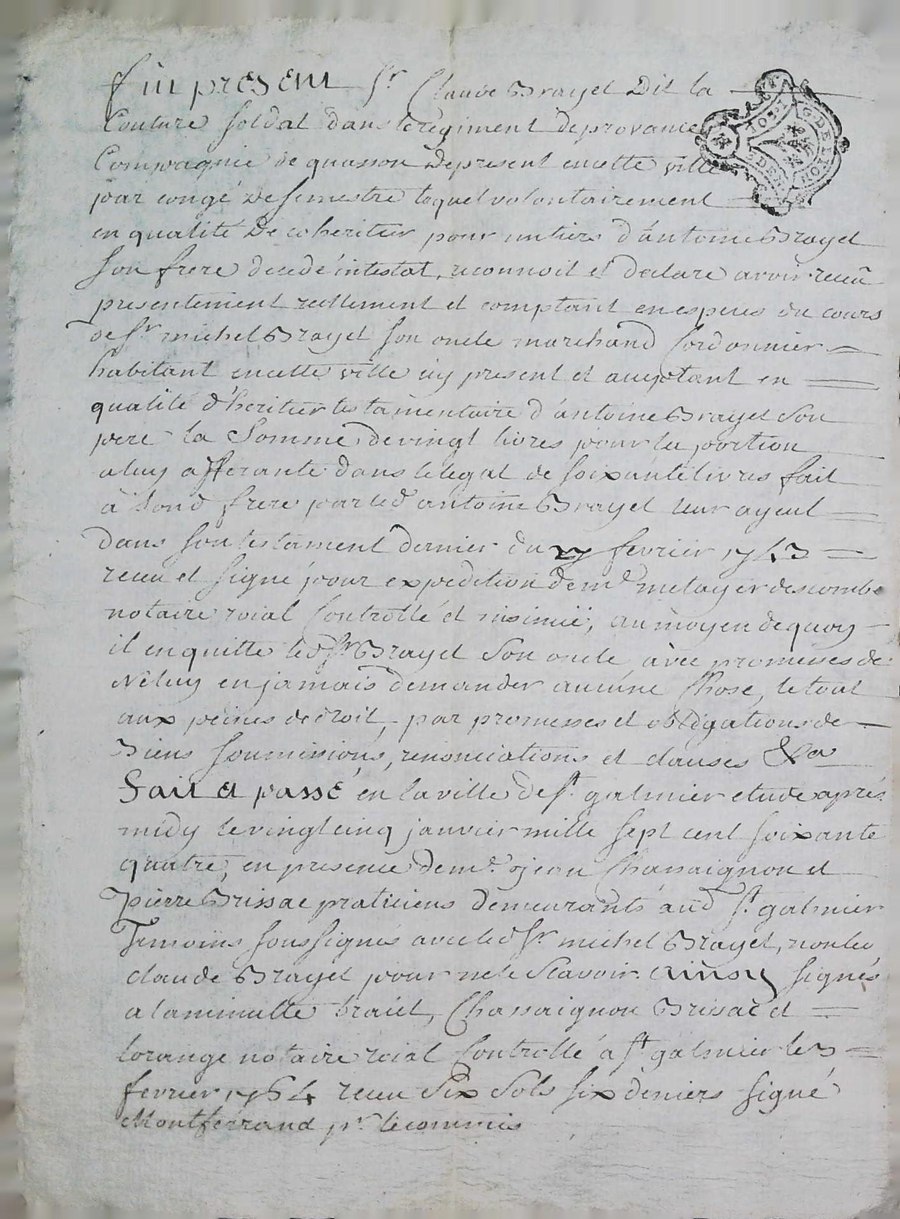 fut present Sr Claude Brayet dit la
Couture soldat dans le regiment de provance
Compagnie de quasson de present en cette ville
par congé de semestre lequel volontairement
en qualité de coheritier pour un tiers d'antoine Brayet
son frere decedé intestat, reconnoit et declare avoir receu
presentement reellement et comptant en especes du cours
de Sr michel Brayet son oncle marchand Cordonnier
habitant en cette ville icy present et acceptant en
qualité d'heritier testamentaire d'antoine Brayet son
pere la somme de vingt livres pour la portion
a luy afferante dans le legat de soixante livres fait
à sond frere par led antoine Brayet leur ayeul
dans son testament dernier du 27 fevrier 1743
receu et signé pour expedition de me metayer descombe
notaire roial Controllé et insinué, au moyen de quoy
il en quitte led Sr Brayet son oncle avec promesses de
ne luy en jamais demander aucune Chose, le tout
aux peines de droit, par promesses et obligations de
biens soumissions, renonciations et clauses &a
fait et passé en la ville de St galmier etude aprés
midy le vingt cinq janvier mille sept cent soixante
quatre, en presence de me jean Chassaignon et
pierre Brissac praticiens demeurants aud St galmier
Temoins soussignés avec led Sr michel Brayet, non led
claude Brayet pour ne le scavoir ainsy signés
a la minutte Braiet, Chassaignon Brissac et
lorange notaire roial Controllé à St galmier le 3
fevrier 1764 receu six sols six deniers signé
Montferrand pr le commis
G. DE LYON